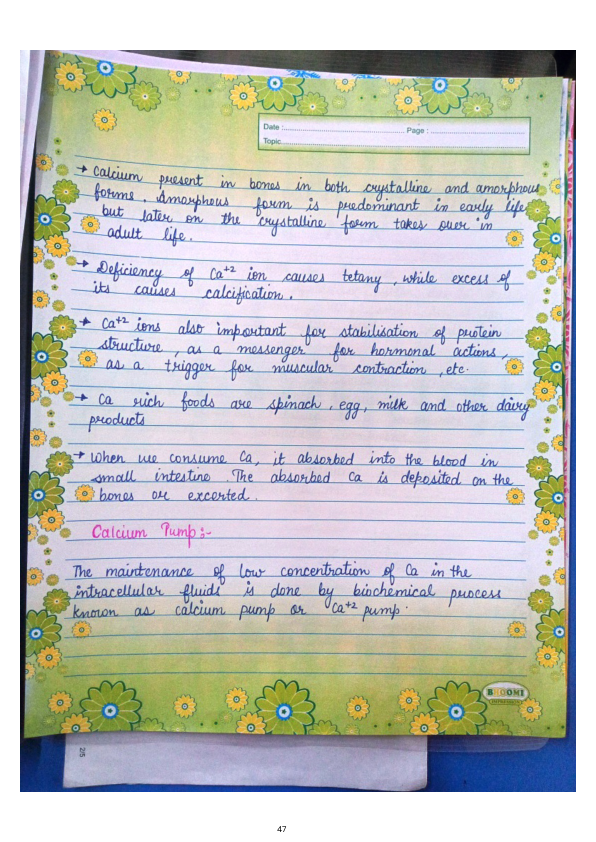 Date : Page :
Topic
→ Calcium present in bones in both crystalline and amorphous
forms. Amorphous form is predominant in early life
but later on the crystalline form takes over in
adult life.
→ Deficiency of Ca+2 ion causes tetany, while excess of
its causes calcification.
→ Ca+2 ions also important for stabilisation of protein
structure, as a messenger for hormonal actions,
as a trigger for muscular contraction, etc.
→ Ca rich foods are spinach, egg, milk and other dairy
products
→ When we consume Ca, it absorbed into the blood in
small intestine. The absorbed Ca is deposited on the
bones or excerted.
Calcium Pump :-
The maintenance of low concentration of Ca in the
intracellular fluids is done by biochemical process
known as calcium pump or Ca+2 pump.
BHOOMI
2/5
47